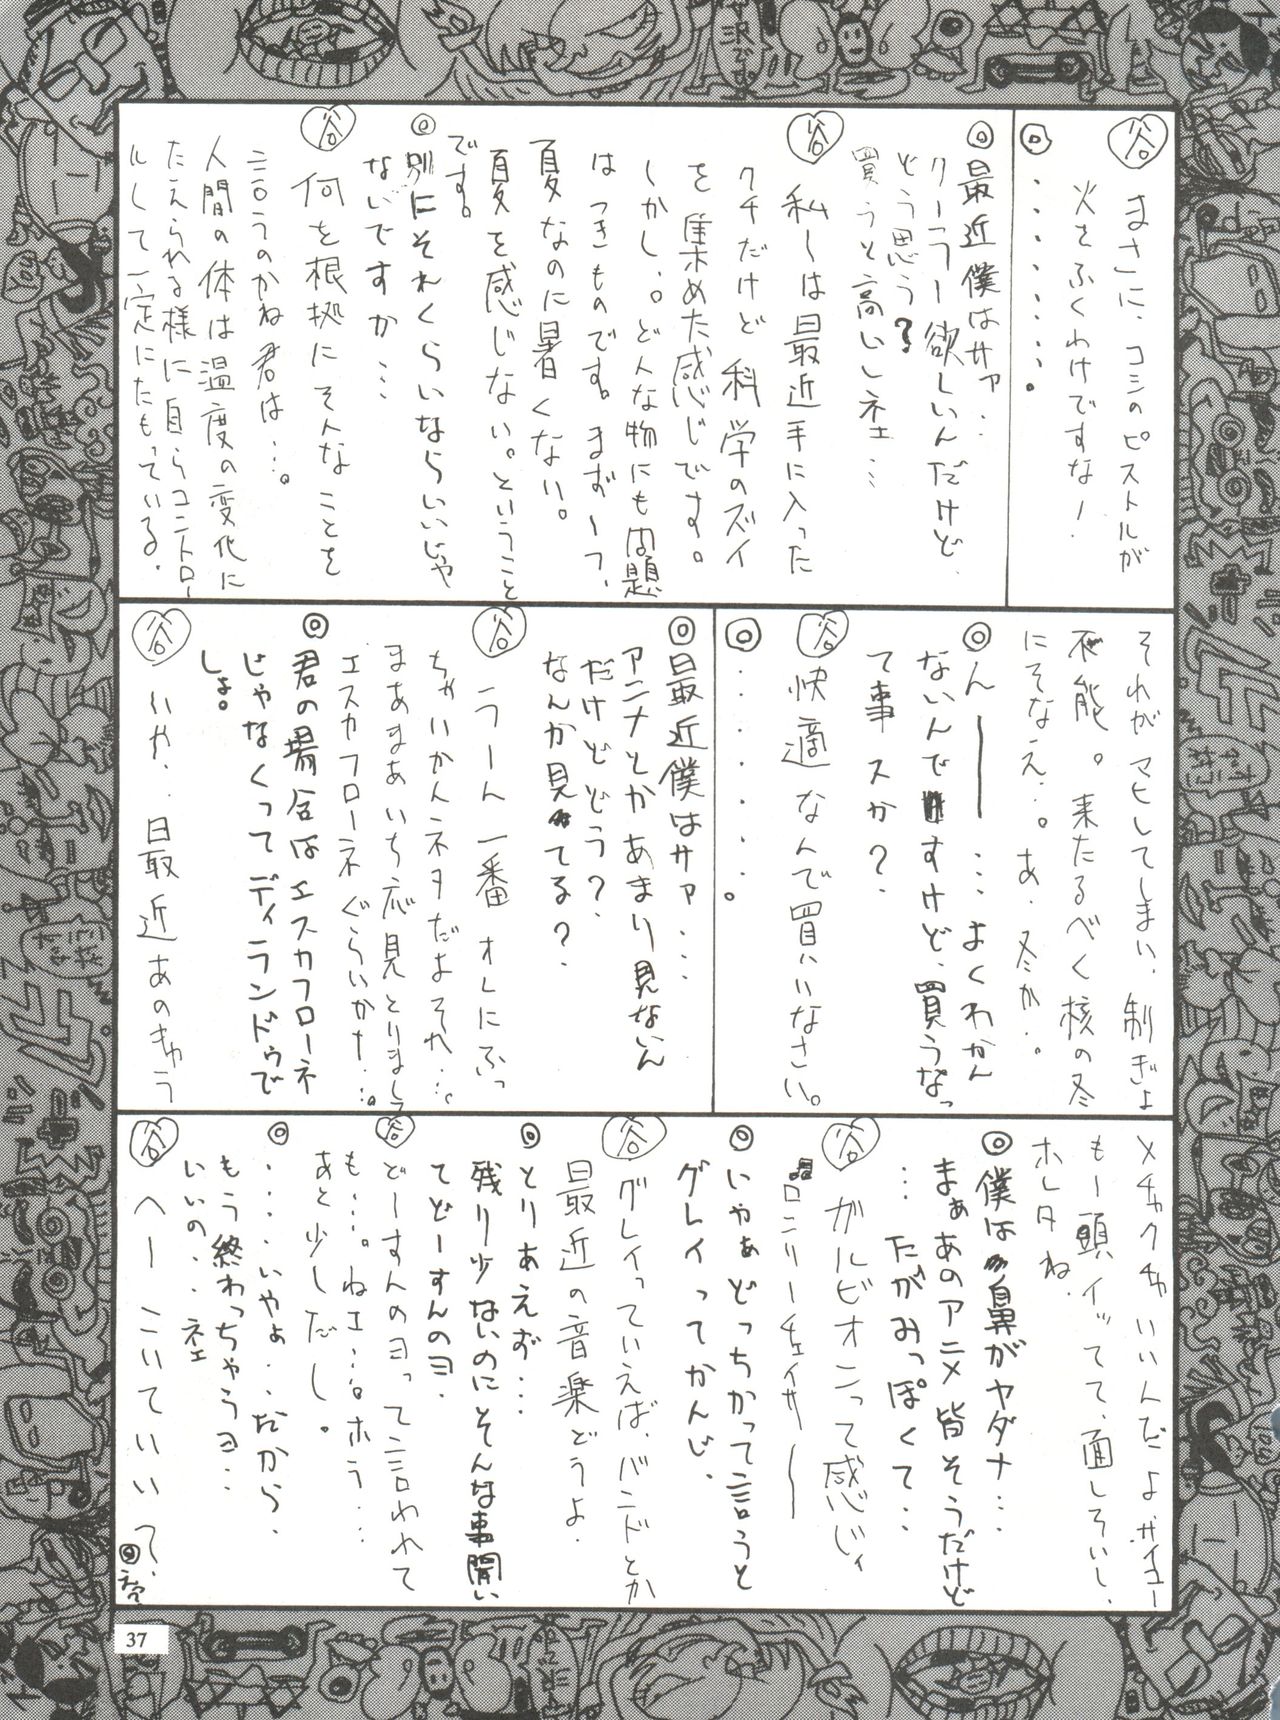 谷 まさに、コシのピストルが
火をふくわけですな!
◎・・・・・・・・。
◎最近僕はサァ・・・
クーラー欲しいんだけど、
どう思う?
買うと高いしネェ・・・
谷 私しは最近手に入った
クチだけど 科学のズイ
を集めた感じです。
しかし・。どんな物にも問題
はつきものです。まず一つ、
夏なのに暑くない。
夏を感じない。ということ
です。
◎別にそれくらいならいいじゃ
ないですか・・・
谷 何を根拠にそんなことを
言うのかね君は・・・。
人間の体は温度の変化に
たえられる様に自らコントロー
ルして一定にたもっている。
それがマヒしてしまい、制ぎょ
不能。来たるべく核の冬
にそなえ・・。あ・冬か・。
◎んーーー・・・よくわかん
ないんですけど、買うなっ
て事スか?
谷 快適なんで買いなさい。
◎・・・・・・。
◎最近僕はサァ・・・
アニメとかあまり見ないん
だけどどう?
なんか見てる?
谷 うーん 一番 オレにふっ
ちゃいかんネタだよそれ・・・
まあまあいち応見とりまして
エスカフローネぐらいか!・・。
◎君の場合はエスカフローネ
じゃなくってディランドゥで
しょ。
谷 いや・・最近あのきゅう
メチャクチャいいんだよサイコー
もー頭イッてて、面しろいし、
ホレタね。
◎僕は鼻がヤダナ・・・
まぁあのアニメ皆そうだけど
・・・たがみっぽくて・・
谷 ガルビオンって感じィ
♫ロンリーチェイサー〜
◎いやぁどっちかって言うと
グレイってかんじ、
谷 グレイっていえば、バンドとか
最近の音楽どうよ・
◎とりあえず・・・
残り少ないのにそんな事聞い
てどーすんのヨ・
谷 どーすんのヨって言われて
も・・・。ねェ・・・。ホラ・・・
あと少しだし。
◎・・・・いやょ・・だから、
もう終わっちゃうヨ・・
いいの・・ネェ
谷 へー こいていい?・
37